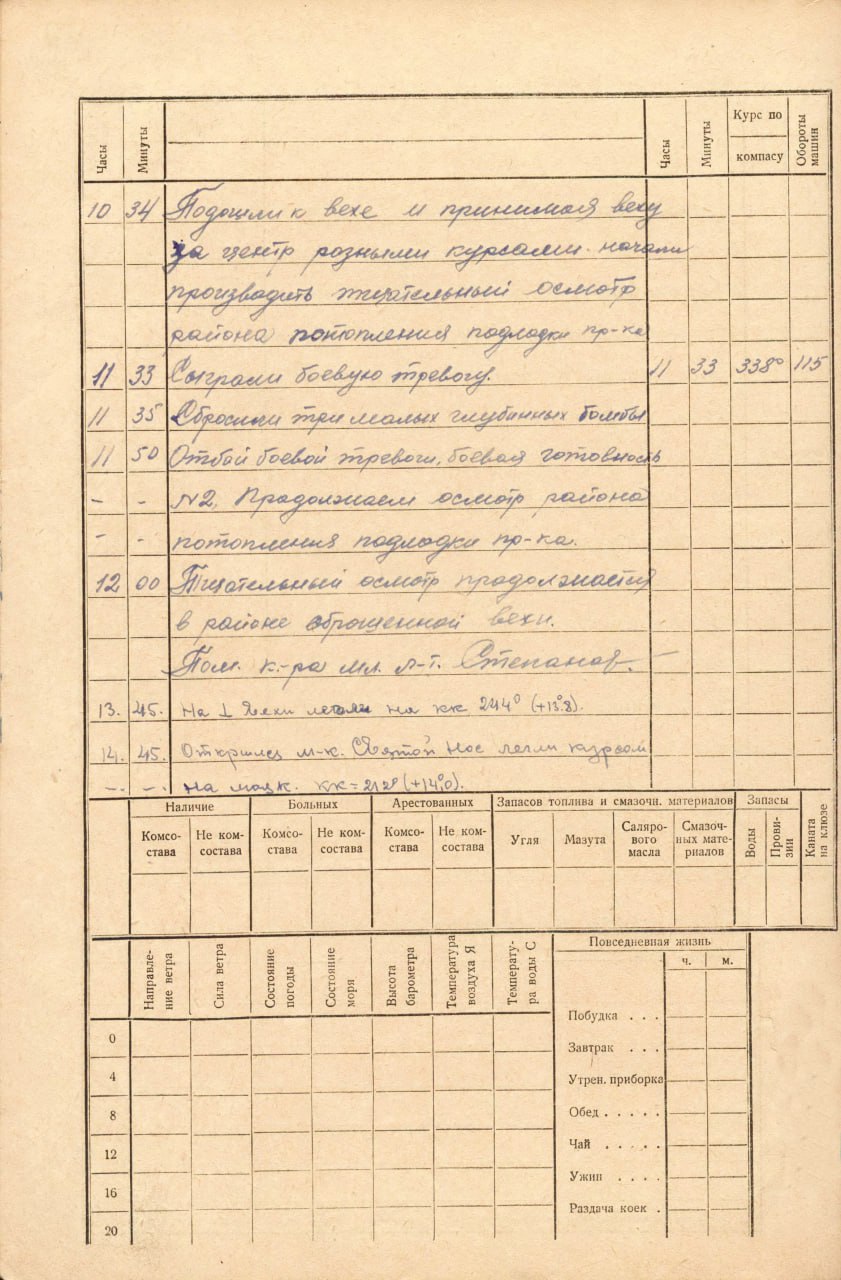 Часы Минуты Часы Минуты Курс по компасу Обороты машин
10 34 Подошли к вехе и принимая веху
за центр разными курсами начали
производить тщательный осмотр
района потопления подлодки пр-ка
11 33 Сыграли боевую тревогу. 11 33 338° 115
11 35 Сбросили три малых глубинных бомбы
11 50 Отбой боевой тревоги, боевая готовность
- - №2. Продолжаем осмотр района
- - потопления подлодки пр-ка.
12 00 Тщательный осмотр продолжается
в районе сброшенной вехи.
Пом. к-ра мл. л-т. Степанов.
13. 45. На ⊥ вехи легли на кк 244° (+13°,8).
14. 45. Открылся м-к. Святой Нос легли курсом
-. -. на маяк. кк = 212° (+14°,0).
Наличие Больных Арестованных Запасов топлива и смазочн. материалов Запасы Каната на клюзе
Комсо-става Не ком-состава Комсо-става Не ком-состава Комсо-става Не ком-состава Угля Мазута Саляро-вого масла Смазоч-ных мате-риалов Воды Прови-зии
Направле-ние ветра Сила ветра Состояние погоды Состояние моря Высота барометра Температура воздуха Я Температу-ра воды С Повседневная жизнь
ч. м.
0
4
8
12
16
20
Побудка . . .
Завтрак . . .
Утрен. приборка
Обед . . . . .
Чай . . . . .
Ужин . . . .
Раздача коек .